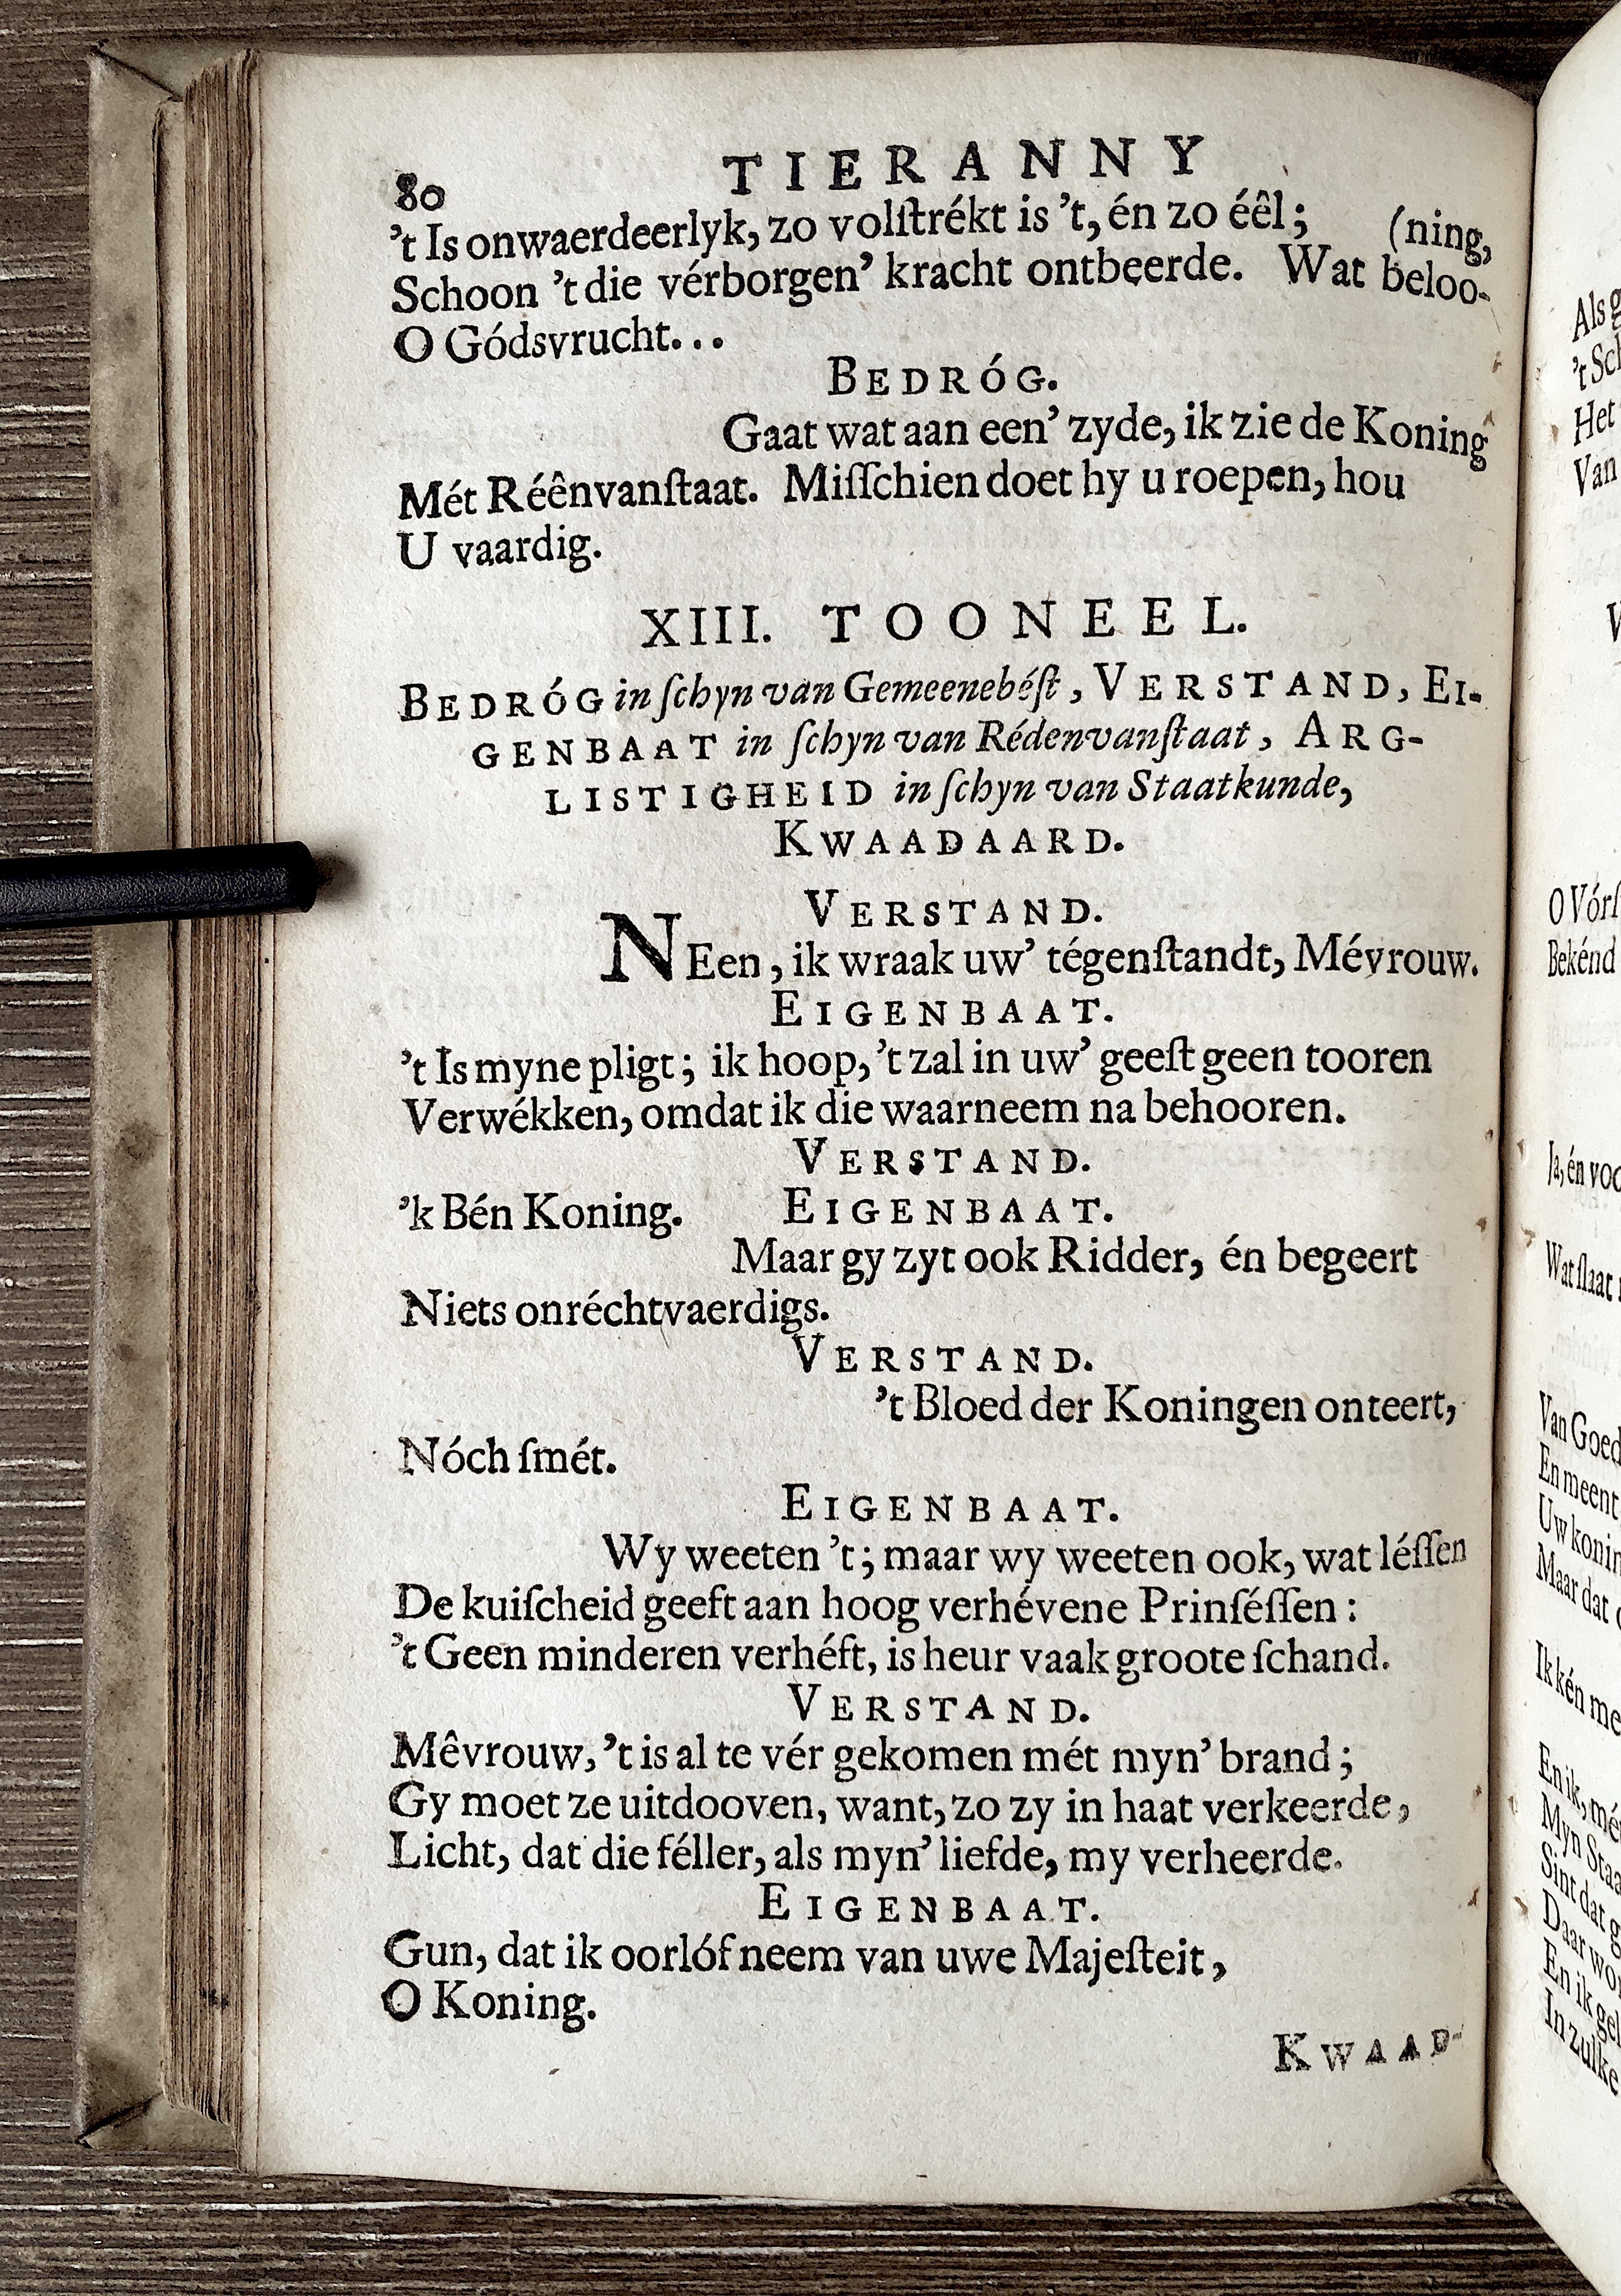 80 TIERANNY
’t Is onwaerdeerlyk, zo volſtrékt is ’t, én zo éêl; (ning,
Schoon ’t die vérborgen’ kracht ontbeerde. Wat beloo-
O Gódsvrucht...
BEDRÓG.
Gaat wat aan een’ zyde, ik zie de Koning
Mét Réênvanſtaat. Miſſchien doet hy u roepen, hou
U vaardig.
XIII. TOONEEL.
BEDRÓG in ſchyn van Gemeenebéſt, VERSTAND, EI-
GENBAAT in ſchyn van Rédenvanſtaat, ARG-
LISTIGHEID in ſchyn van Staatkunde,
KWAADAARD.
VERSTAND.
NEen, ik wraak uw’ tégenſtandt, Mévrouw.
EIGENBAAT.
’t Is myne pligt; ik hoop, ’t zal in uw’ geeſt geen tooren
Verwékken, omdat ik die waarneem na behooren.
VERSTAND.
’k Bén Koning. EIGENBAAT.
Maar gy zyt ook Ridder, én begeert
Niets onréchtvaerdigs.
VERSTAND.
’t Bloed der Koningen onteert,
Nóch ſmét.
EIGENBAAT.
Wy weeten ’t; maar wy weeten ook, wat léſſen
De kuiſcheid geeft aan hoog verhévene Prinſéſſen:
’t Geen minderen verhéft, is heur vaak groote ſchand.
VERSTAND.
Mêvrouw, ’t is al te vér gekomen mét myn’ brand;
Gy moet ze uitdooven, want, zo zy in haat verkeerde,
Licht, dat die féller, als myn’ liefde, my verheerde.
EIGENBAAT.
Gun, dat ik oorlóf neem van uwe Majeſteit,
O Koning.
KWAAD-
Als
’t
Het
Van
O
Bekénd
Ja, én
Wat ſlaat
Van Goed
En meent
Uw
Maar dat
Ik kén
En ik,
Myn
Sint dat
Daar
En ik
In zulke